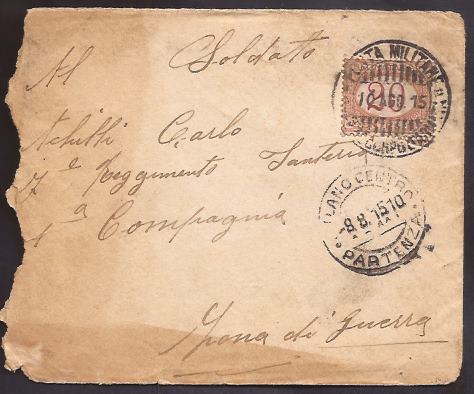 Al Soldato
Achilli Carlo
7° Reggimento Fanteria
1ª Compagnia
Zona di Guerra
POSTA MILITARE
20
10 AGO 15
CORPO
MILANO CENTRO
8.8.15 10
PARTENZA